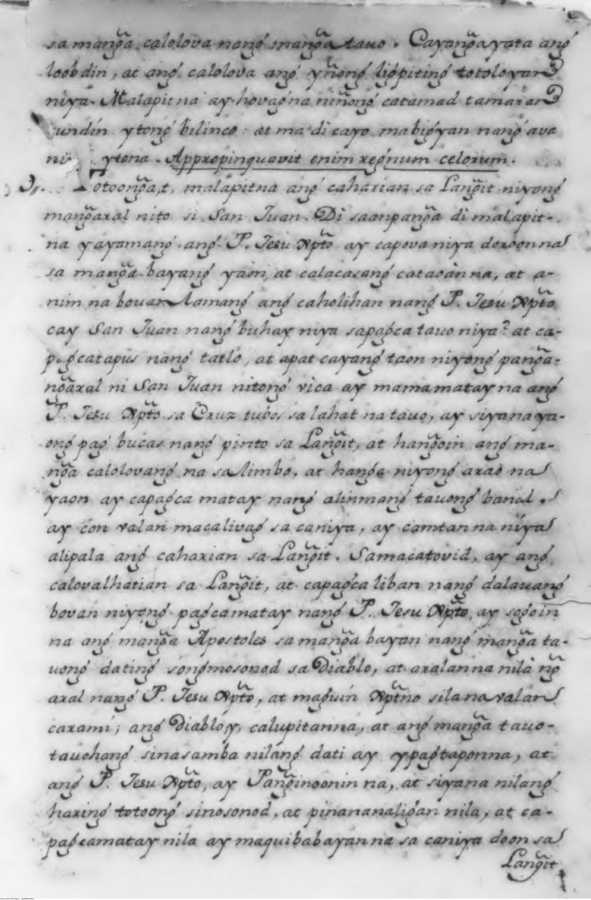 sa mang̃a, calolova nang̃ mang̃a tauo. Cayang̃a yata ang̃
loobdin, at ang̃ calolova ang̃ yñong̃ lig̃piting̃ totoloyan
niya. Malapit na ay hovag̃ na niñong̃ catamad tamaran
undin ytong̃ bilinco. at ma di cayo mabig̃yan nang̃ ava
ni ytona. Appropinquavit enim reg̃num celorum.
Totoong̃a,t, malapitna ang̃ caharian sa Lang̃it niyong̃
mang̃aral nito si San Juan. Di saanpang̃a di malapit-
na yayamang̃ ang̃ P. Jesu Xp̃to ay capova niya doroon na
sa mang̃a bayang̃ yaon, at calacasang̃ cataoan na, at a-
nim na bouan lamang̃ ang̃ caholihan nang̃ P. Jesu Xp̃to
cay San Juan nang̃ buhay niya sapag̃ca tauo niya? at ca-
p.g̃catapus nang̃ tatlo, at apat cayang̃ taon niyong̃ pang̃a-
ng̃aral ni San Juan nitong̃ vica ay mamamatay na ang̃
P. Jesu Xp̃to sa Cruz tubos sa lahat na tauo, ay siyana ya-
ong̃ pag̃ bucas nang̃ pinto sa Lang̃it, at hang̃oin ang̃ ma-
ng̃a calolovang̃ na sa Limbo, at hang̃a niyong̃ arao na
yaon ay capag̃ca matay nang̃ alinmang̃ tauong̃ banal.
ay con valan macalivag̃ sa caniya, ay camtan na niya
alipala ang̃ caharian sa Lang̃it. Samacatovid, ay ang̃
calovalhatian sa Lang̃it, at capag̃ca liban nang̃ dalauang̃
bovan niyong̃ pag̃camatay nang̃ P. Jesu Xp̃to, ay sog̃oin
na ang̃ mang̃a Apostoles sa mang̃a bayan nang̃ mang̃a ta-
uong̃ dating̃ song̃mosonod sa Diablo, at aralanna nila ng̃
aral nang̃ P. Jesu Xp̃to, at mag̃uin Xp̃tno sila na valan
carami; ang̃ Diabloy, calupitanna, at ang̃ mang̃a tauo-
tauohang̃ sinasamba nilang̃ dati ay ypag̃taponna, at
ang̃ P. Jesu Xp̃to, ay Pang̃inoonin na, at siyana nilang̃
haring̃ totoong̃ sinosonod, at pinananalig̃an nila, at ca-
pag̃camatay nila ay maquibabayan na sa caniya doon sa
Lang̃it